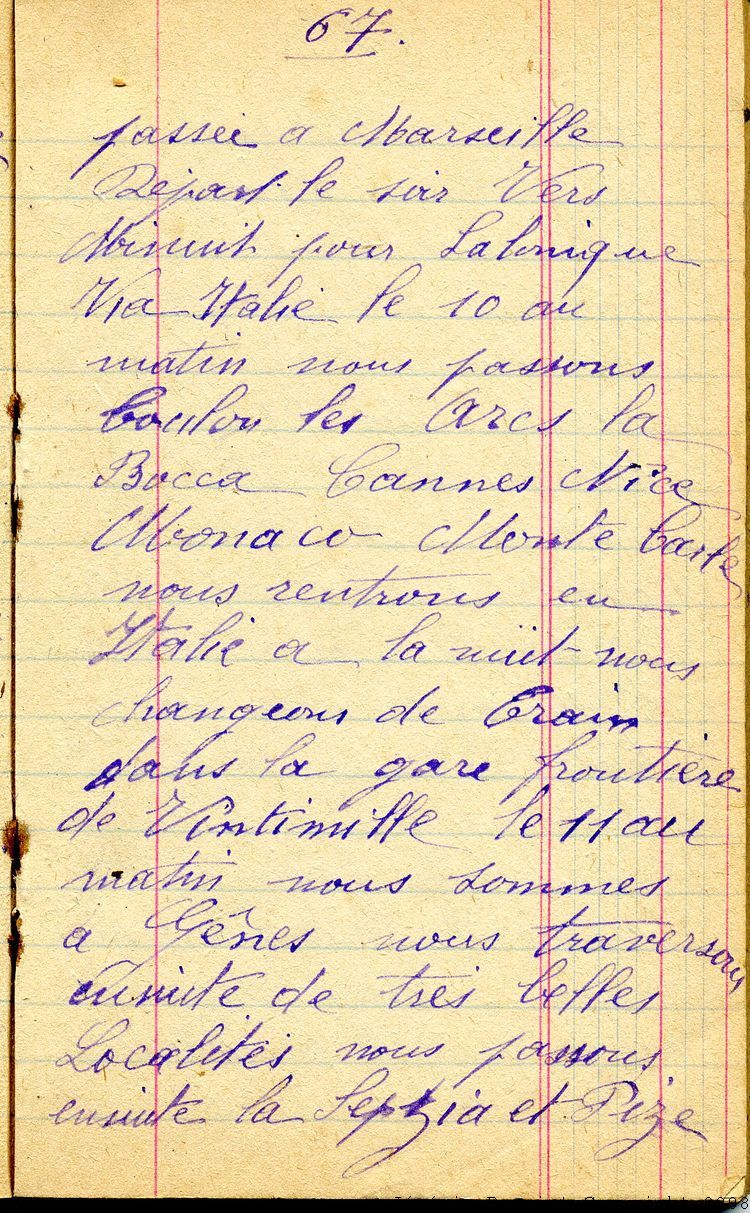 67.
passée a Marseille
Départ le soir Vers
Minuit pour Salonique
Via Italie le 10 au
matin nous passons
Toulon les Arcs la
Bocca Cannes Nice
Monaco Monte Carle
nous rentrons en
Italie a la nuit nous
changeons de Train
dans la gare frontière
de Vintimille le 11 au
matin nous sommes
a Gênes nous traversons
ensuite de très belles
Localités nous passons
ensuite la Sepzia et Pize